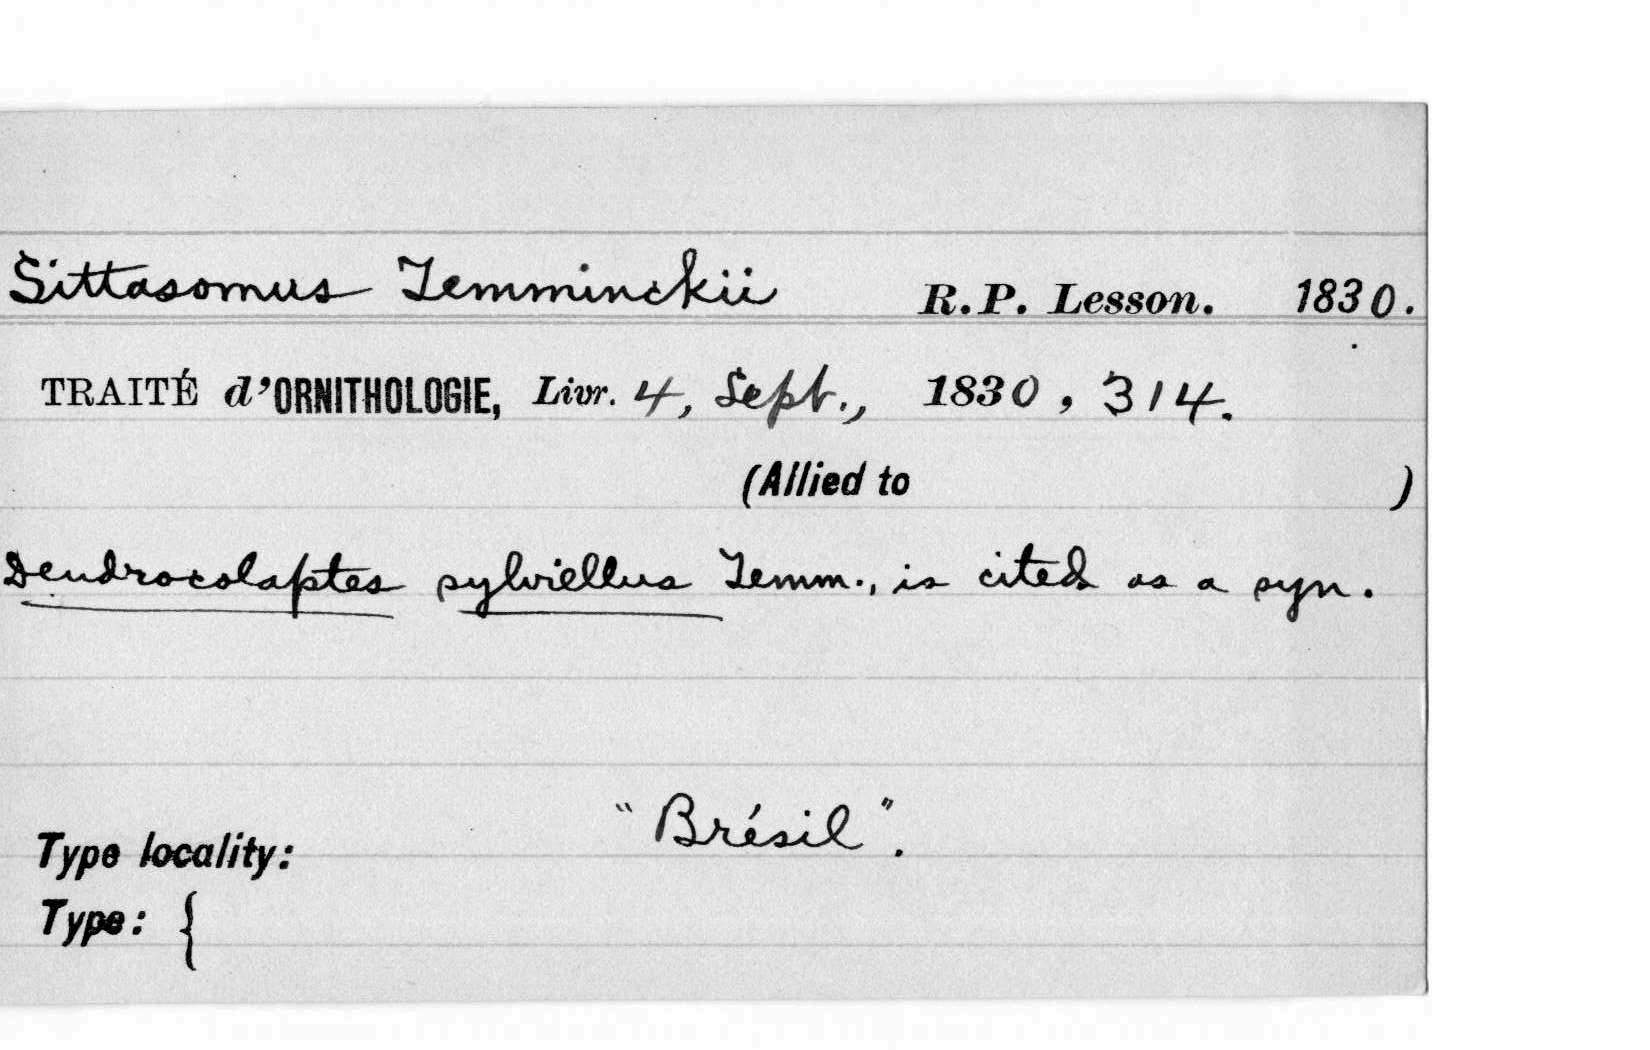 Sittasomus Temminckii R.P. Lesson. 1830.
TRAITÉ d'ORNITHOLOGIE, Livr. 4, Sept., 1830, 314.
(Allied to )
Dendrocolaptes sylviellus Temm., is cited as a syn.
"Brésil".
Type locality:
Type: {